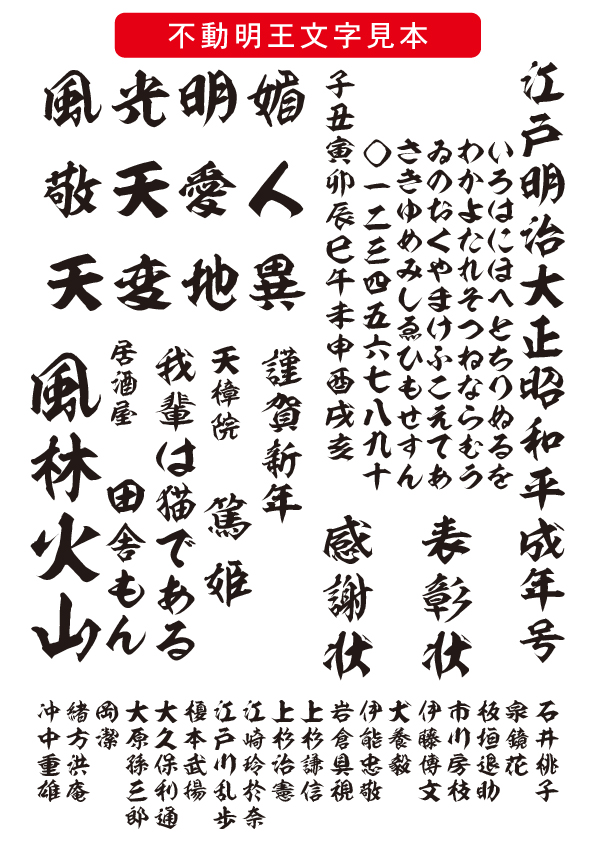 不動明王文字見本
江戸明治大正昭和平成年号
いろはにほへとちりぬるを
わかよたれそつねならむう
ゐのおくやまけふこえてあ
さきゆめみしゑひもせすん
〇一二三四五六七八九十
子丑寅卯辰巳午未申酉戌亥
表彰状
感謝状
媚人異
明愛地
光天変
風敬天
謹賀新年
天樟院
篤姫
我輩は猫である
居酒屋
田舎もん
風林火山
石井桃子
泉鏡花
板垣退助
市川房枝
伊藤傳文
犬養毅
伊能忠敬
岩倉具視
上杉謙信
上杉治憲
江崎玲於奈
江戸川乱歩
榎本武揚
大久保利通
大原孫三郎
岡潔
緒方洪庵
沖中重雄